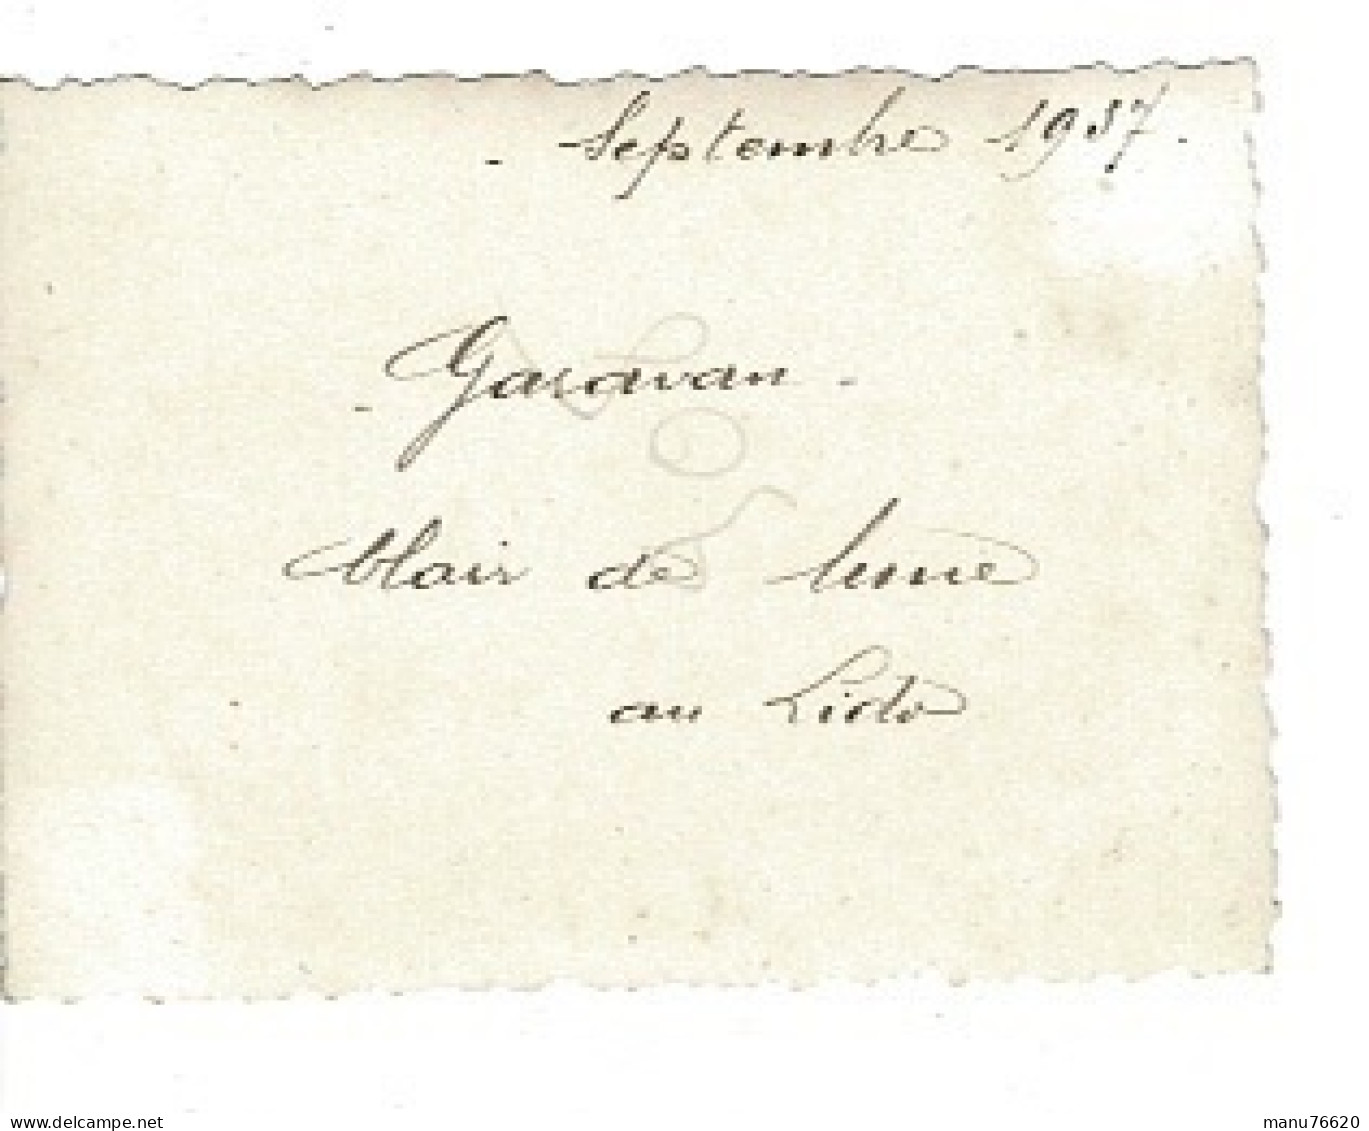 - Septembre 1937.
- Garavan -
Clair de lune
au Lido
www.delcampe.net
manu76620